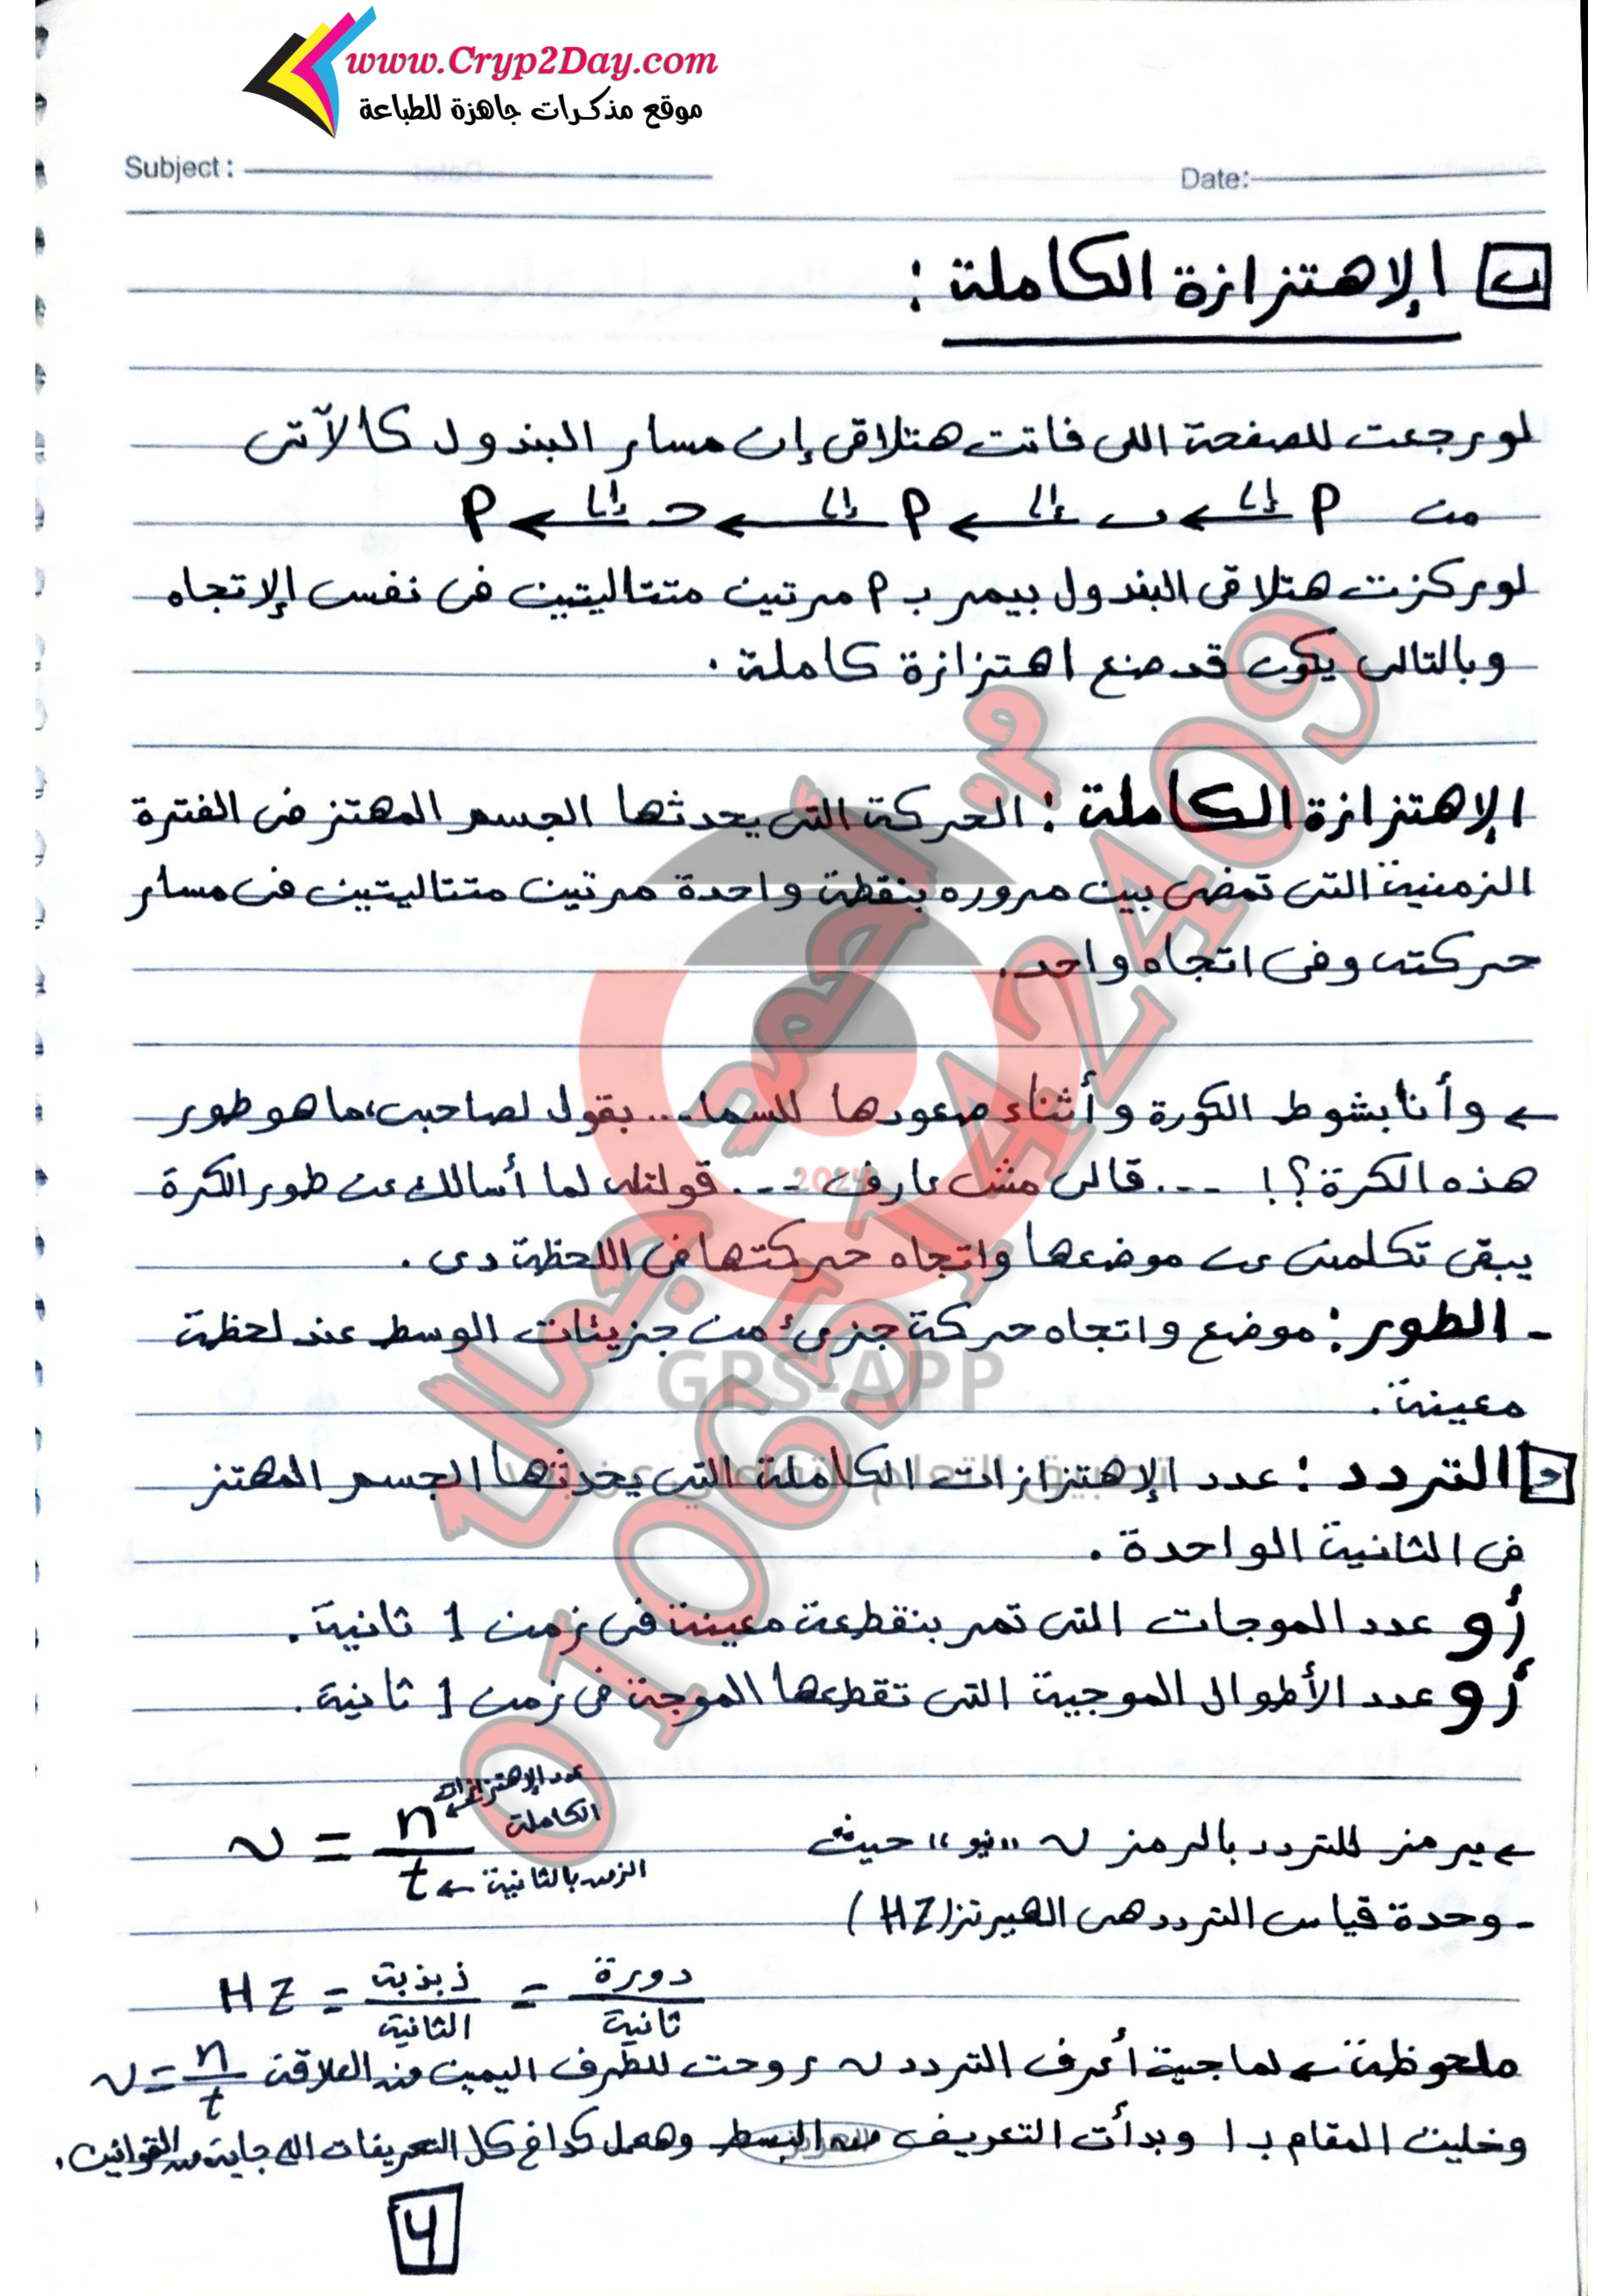 www.Cryp2Day.com
موقع مذكرات جاهزة للطباعة
Subject :
Date:
ب الإهتزازة الكاملة :
لو رجعت للصفحة اللى فاتت هتلاقى إن مسار البندول كالآتى
من P إلى ب إلى P إلى ح إلى P
لو ركزت هتلاقى البندول بيمر بـ P مرتين متتاليتين فى نفس الإتجاه
وبالتالى يكون قد صنع اهتزازة كاملة .
الإهتزازة الكاملة : الحركة التى يحدثها الجسم المهتز فى الفترة
الزمنية التى تمضى بين مروره بنقطة واحدة مرتين متتاليتين فى مسار
حركته وفى اتجاه واحد .
← وأنا بشوط الكورة وأثناء صعودها للسما ... بقول لصاحبى، ما هو طور
هذه الكرة ؟! ... قالى مش عارف ... قولتله لما أسالك عن طور الكرة
يبقى تكلمنى عن موضعها واتجاه حركتها فى اللحظة دى .
- الطور : موضع واتجاه حركة جزىء من جزيئات الوسط عند لحظة
معينة .
التردد : عدد الإهتزازات الكاملة التى يحدثها الجسم المهتز
فى الثانية الواحدة .
أو عدد الموجات التى تمر بنقطعة معينة فى زمن 1 ثانية .
أو عدد الأطوال الموجية التى تقطعها الموجة فى زمن 1 ثانية .
← يرمز للتردد بالرمز ν "نيو" حيث
ν = n/t
عدد الإهتزازات الكاملة
الزمن بالثانية
- وحدة قياس التردد هى الهيرتز (HZ)
HZ = ذبذبة/الثانية = دورة/ثانية
ملحوظة ← لما جيت أعرف التردد ν روحت للطرف اليمين من العلاقة ν = n/t
وخليت المقام بـ 1 وبدأت التعريف من البسط وهعمل كدا فى كل التعريفات اللى جاية من القوانين .
4
م. أحمد جمال
01065142409
2024
GPS-APP